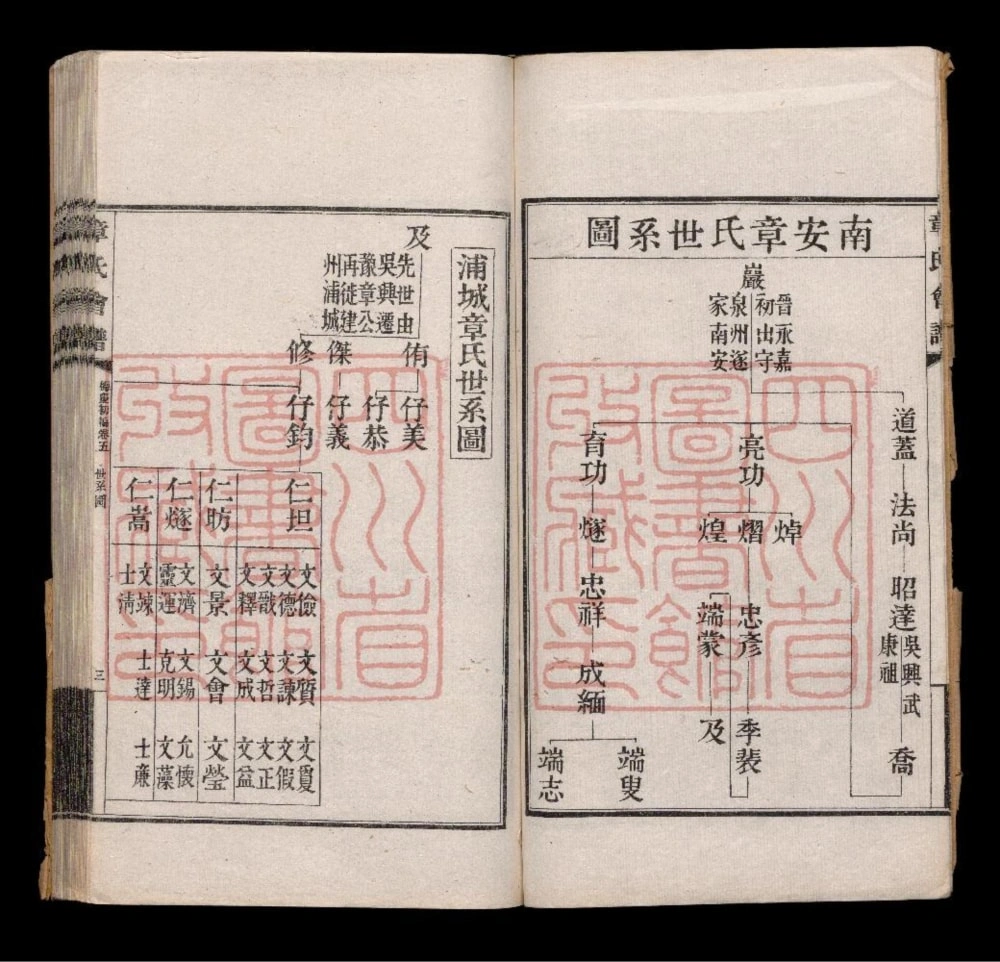 南安章氏世系圖
巖
晉永嘉
初出守
泉州遂
家南安
道蓋
法尚
昭達
吳興武
康祖
喬
亮功
育功
焯
熠
煌
燧
忠彥
端蒙
忠祥
季裴
及
成緬
端叟
端志
浦城章氏世系圖
及
先世由
吳興遷
豫章公
再徙建
州浦城
侑
傑
修
仔美
仔恭
仔義
仔鈞
仁坦
仁昉
仁燧
仁嵩
文儉
文質
文夐
文德
文諫
文假
文戩
文哲
文正
文釋
文成
文益
文景
文會
文瑩
文濟
文錫
允懷
靈運
克明
文藻
文竦
士淸
士達
士廉
章氏會譜
世系圖
三
章氏會譜
四川省
圖書館
收藏印